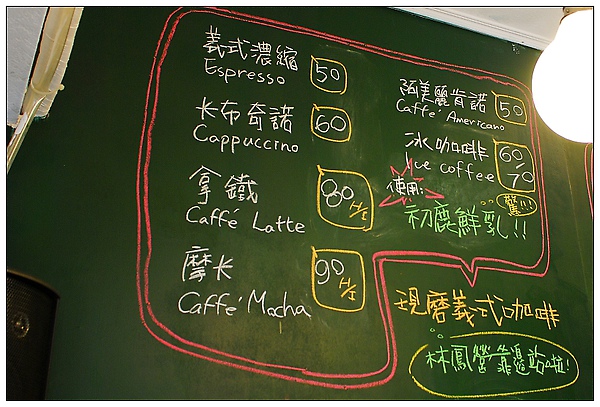 義式濃縮
Espresso
50
卡布奇諾
Cappuccino
60
拿鐵
Caffé Latte
80 H/I
摩卡
Caffé Mocha
90 H/I
阿美麗肯諾
Caffé Americano
50
冰咖啡
Ice coffee
60/70
使用:
驚!!
初鹿鮮乳!!
現磨義式咖啡
林鳳營靠邊站啦!